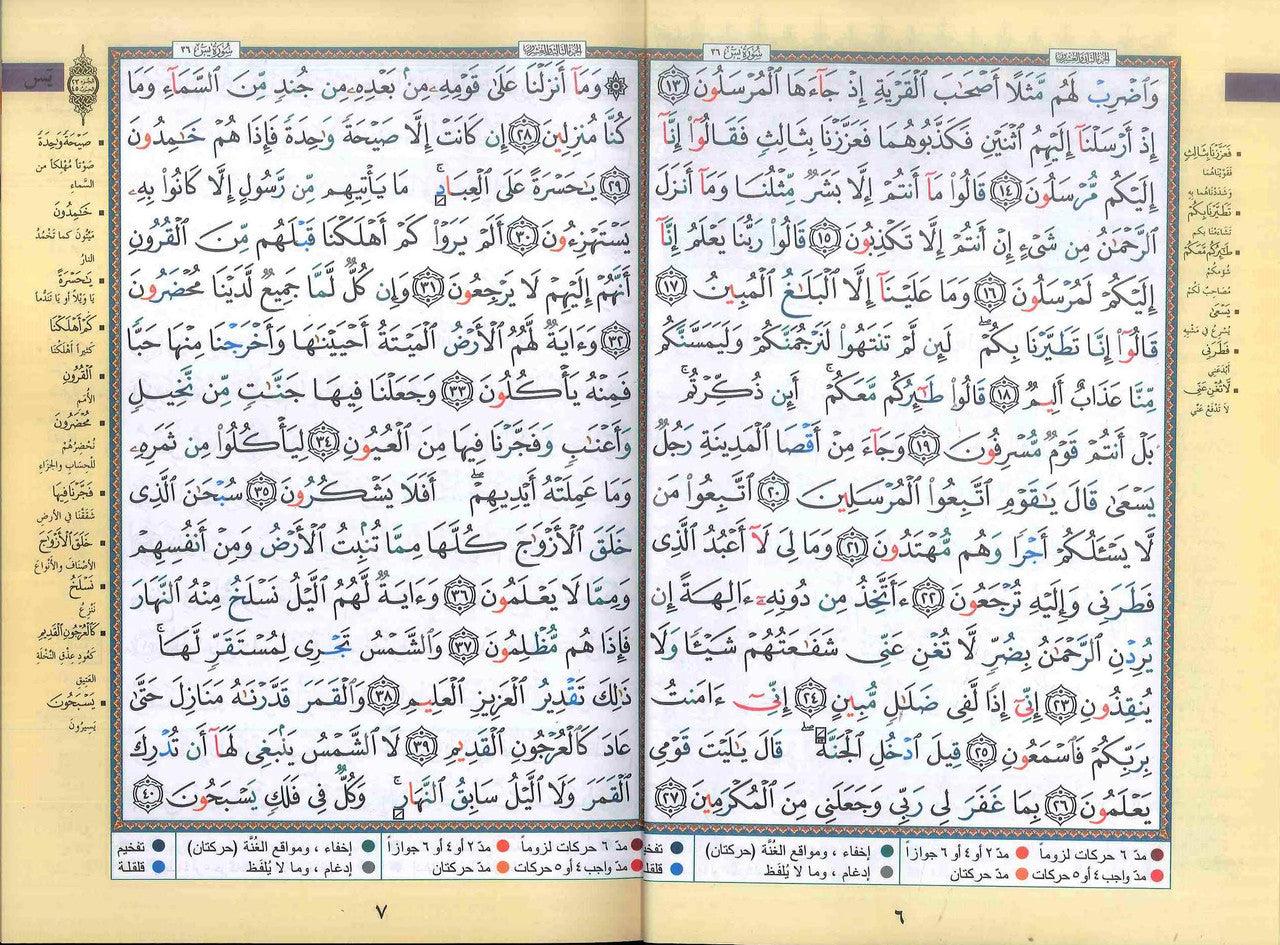 الجزء الثاني والعشرون
سورة يس ٣٦
وَاضْرِبْ لَهُم مَّثَلًا أَصْحَابَ الْقَرْيَةِ إِذْ جَاءَهَا الْمُرْسَلُونَ ١٣
إِذْ أَرْسَلْنَا إِلَيْهِمُ اثْنَيْنِ فَكَذَّبُوهُمَا فَعَزَّزْنَا بِثَالِثٍ فَقَالُوا إِنَّا
إِلَيْكُم مُّرْسَلُونَ ١٤ قَالُوا مَا أَنتُمْ إِلَّا بَشَرٌ مِّثْلُنَا وَمَا أَنزَلَ
الرَّحْمَٰنُ مِن شَيْءٍ إِنْ أَنتُمْ إِلَّا تَكْذِبُونَ ١٥ قَالُوا رَبُّنَا يَعْلَمُ إِنَّا
إِلَيْكُمْ لَمُرْسَلُونَ ١٦ وَمَا عَلَيْنَا إِلَّا الْبَلَاغُ الْمُبِينُ ١٧
قَالُوا إِنَّا تَطَيَّرْنَا بِكُمْ ۖ لَئِن لَّمْ تَنتَهُوا لَنَرْجُمَنَّكُمْ وَلَيَمَسَّنَّكُم
مِّنَّا عَذَابٌ أَلِيمٌ ١٨ قَالُوا طَائِرُكُم مَّعَكُمْ ۚ أَئِن ذُكِّرْتُم ۚ
بَلْ أَنتُمْ قَوْمٌ مُّسْرِفُونَ ١٩ وَجَاءَ مِنْ أَقْصَا الْمَدِينَةِ رَجُلٌ
يَسْعَىٰ قَالَ يَا قَوْمِ اتَّبِعُوا الْمُرْسَلِينَ ٢٠ اتَّبِعُوا مَن
لَّا يَسْأَلُكُمْ أَجْرًا وَهُم مُّهْتَدُونَ ٢١ وَمَا لِيَ لَا أَعْبُدُ الَّذِي
فَطَرَنِي وَإِلَيْهِ تُرْجَعُونَ ٢٢ ءَأَتَّخِذُ مِن دُونِهِ ءَالِهَةً إِن
يُرِدْنِ الرَّحْمَٰنُ بِضُرٍّ لَّا تُغْنِ عَنِّي شَفَاعَتُهُمْ شَيْئًا وَلَا
يُنقِذُونِ ٢٣ إِنِّي إِذًا لَّفِي ضَلَالٍ مُّبِينٍ ٢٤ إِنِّي ءَامَنتُ
بِرَبِّكُمْ فَاسْمَعُونِ ٢٥ قِيلَ ادْخُلِ الْجَنَّةَ ۖ قَالَ يَا لَيْتَ قَوْمِي
يَعْلَمُونَ ٢٦ بِمَا غَفَرَ لِي رَبِّي وَجَعَلَنِي مِنَ الْمُكْرَمِينَ ٢٧
فَعَزَّزْنَا بِثَالِثٍ
فَقَوَّيْنَاهُمَا
وَشَدَدْنَاهُمَا بِهِ
تَطَيَّرْنَا بِكُمْ
تَشَاءَمْنَا بِكُم
طَائِرُكُم مَّعَكُمْ
شُؤمُكُمْ
مُصَاحِبٌ لَكُمْ
يَسْعَىٰ
يُسْرِعُ فِي مَشْيِهِ
فَطَرَنِي
أَبْدَعَنِي
لَّا تُغْنِ عَنِّي
لَا تَدْفَعْ عَنِّي
مدّ ٦ حركات لزوماً مدّ ٢ أو ٤ أو ٦ جوازاً إخفاء ، ومواقع الغُنَّة (حركتان) تفخيم
مدّ واجب ٤ أو ٥ حركات مدّ حركتان إدغام ، وما لا يُلفَظ قلقلة
٦
الجزء الثالث والعشرون
سورة يس ٣٦
يَس
وَمَا أَنزَلْنَا عَلَىٰ قَوْمِهِ مِن بَعْدِهِ مِن جُندٍ مِّنَ السَّمَاءِ وَمَا
كُنَّا مُنزِلِينَ ٢٨ إِن كَانَتْ إِلَّا صَيْحَةً وَاحِدَةً فَإِذَا هُمْ خَامِدُونَ
٢٩ يَا حَسْرَةً عَلَى الْعِبَادِ ۚ مَا يَأْتِيهِم مِّن رَّسُولٍ إِلَّا كَانُوا بِهِ
يَسْتَهْزِءُونَ ٣٠ أَلَمْ يَرَوْا كَمْ أَهْلَكْنَا قَبْلَهُم مِّنَ الْقُرُونِ
أَنَّهُمْ إِلَيْهِمْ لَا يَرْجِعُونَ ٣١ وَإِن كُلٌّ لَّمَّا جَمِيعٌ لَّدَيْنَا مُحْضَرُونَ
٣٢ وَءَايَةٌ لَّهُمُ الْأَرْضُ الْمَيْتَةُ أَحْيَيْنَاهَا وَأَخْرَجْنَا مِنْهَا حَبًّا
فَمِنْهُ يَأْكُلُونَ ٣٣ وَجَعَلْنَا فِيهَا جَنَّاتٍ مِّن نَّخِيلٍ
وَأَعْنَابٍ وَفَجَّرْنَا فِيهَا مِنَ الْعُيُونِ ٣٤ لِيَأْكُلُوا مِن ثَمَرِهِ
وَمَا عَمِلَتْهُ أَيْدِيهِمْ ۖ أَفَلَا يَشْكُرُونَ ٣٥ سُبْحَانَ الَّذِي
خَلَقَ الْأَزْوَاجَ كُلَّهَا مِمَّا تُنبِتُ الْأَرْضُ وَمِنْ أَنفُسِهِمْ
وَمِمَّا لَا يَعْلَمُونَ ٣٦ وَءَايَةٌ لَّهُمُ اللَّيْلُ نَسْلَخُ مِنْهُ النَّهَارَ
فَإِذَا هُم مُّظْلِمُونَ ٣٧ وَالشَّمْسُ تَجْرِي لِمُسْتَقَرٍّ لَّهَا ۚ
ذَٰلِكَ تَقْدِيرُ الْعَزِيزِ الْعَلِيمِ ٣٨ وَالْقَمَرَ قَدَّرْنَاهُ مَنَازِلَ حَتَّىٰ
عَادَ كَالْعُرْجُونِ الْقَدِيمِ ٣٩ لَا الشَّمْسُ يَنبَغِي لَهَا أَن تُدْرِكَ
الْقَمَرَ وَلَا اللَّيْلُ سَابِقُ النَّهَارِ ۚ وَكُلٌّ فِي فَلَكٍ يَسْبَحُونَ ٤٠
صَيْحَةً وَاحِدَةً
صَوْتاً مُهْلِكاً من
السَّمَاءِ
خَامِدُونَ
مَيِّتُونَ كما تَخْمُدُ
النارُ
يَا حَسْرَةً
يَا وَيْلاً أو يَا تَنَدُّماً
كَمْ أَهْلَكْنَا
كَثِيراً أَهْلَكْنَا
الْقُرُونِ
الأُمَمِ
مُحْضَرُونَ
نُحْضِرُهُمْ
لِلْحِسَابِ والجَزَاءِ
فَجَّرْنَا فِيهَا
شَقَقْنَا فِي الأَرضِ
خَلَقَ الْأَزْوَاجَ
الأَصْنَافَ والأَنْوَاعَ
نَسْلَخُ
نَنْزِعُ
كَالْعُرْجُونِ الْقَدِيمِ
كَعُودِ عِذْقِ النَّخْلَةِ
العَتِيقِ
يَسْبَحُونَ
يَسِيرُونَ
مدّ ٦ حركات لزوماً مدّ ٢ أو ٤ أو ٦ جوازاً إخفاء ، ومواقع الغُنَّة (حركتان) تفخيم
مدّ واجب ٤ أو ٥ حركات مدّ حركتان إدغام ، وما لا يُلفَظ قلقلة
٧